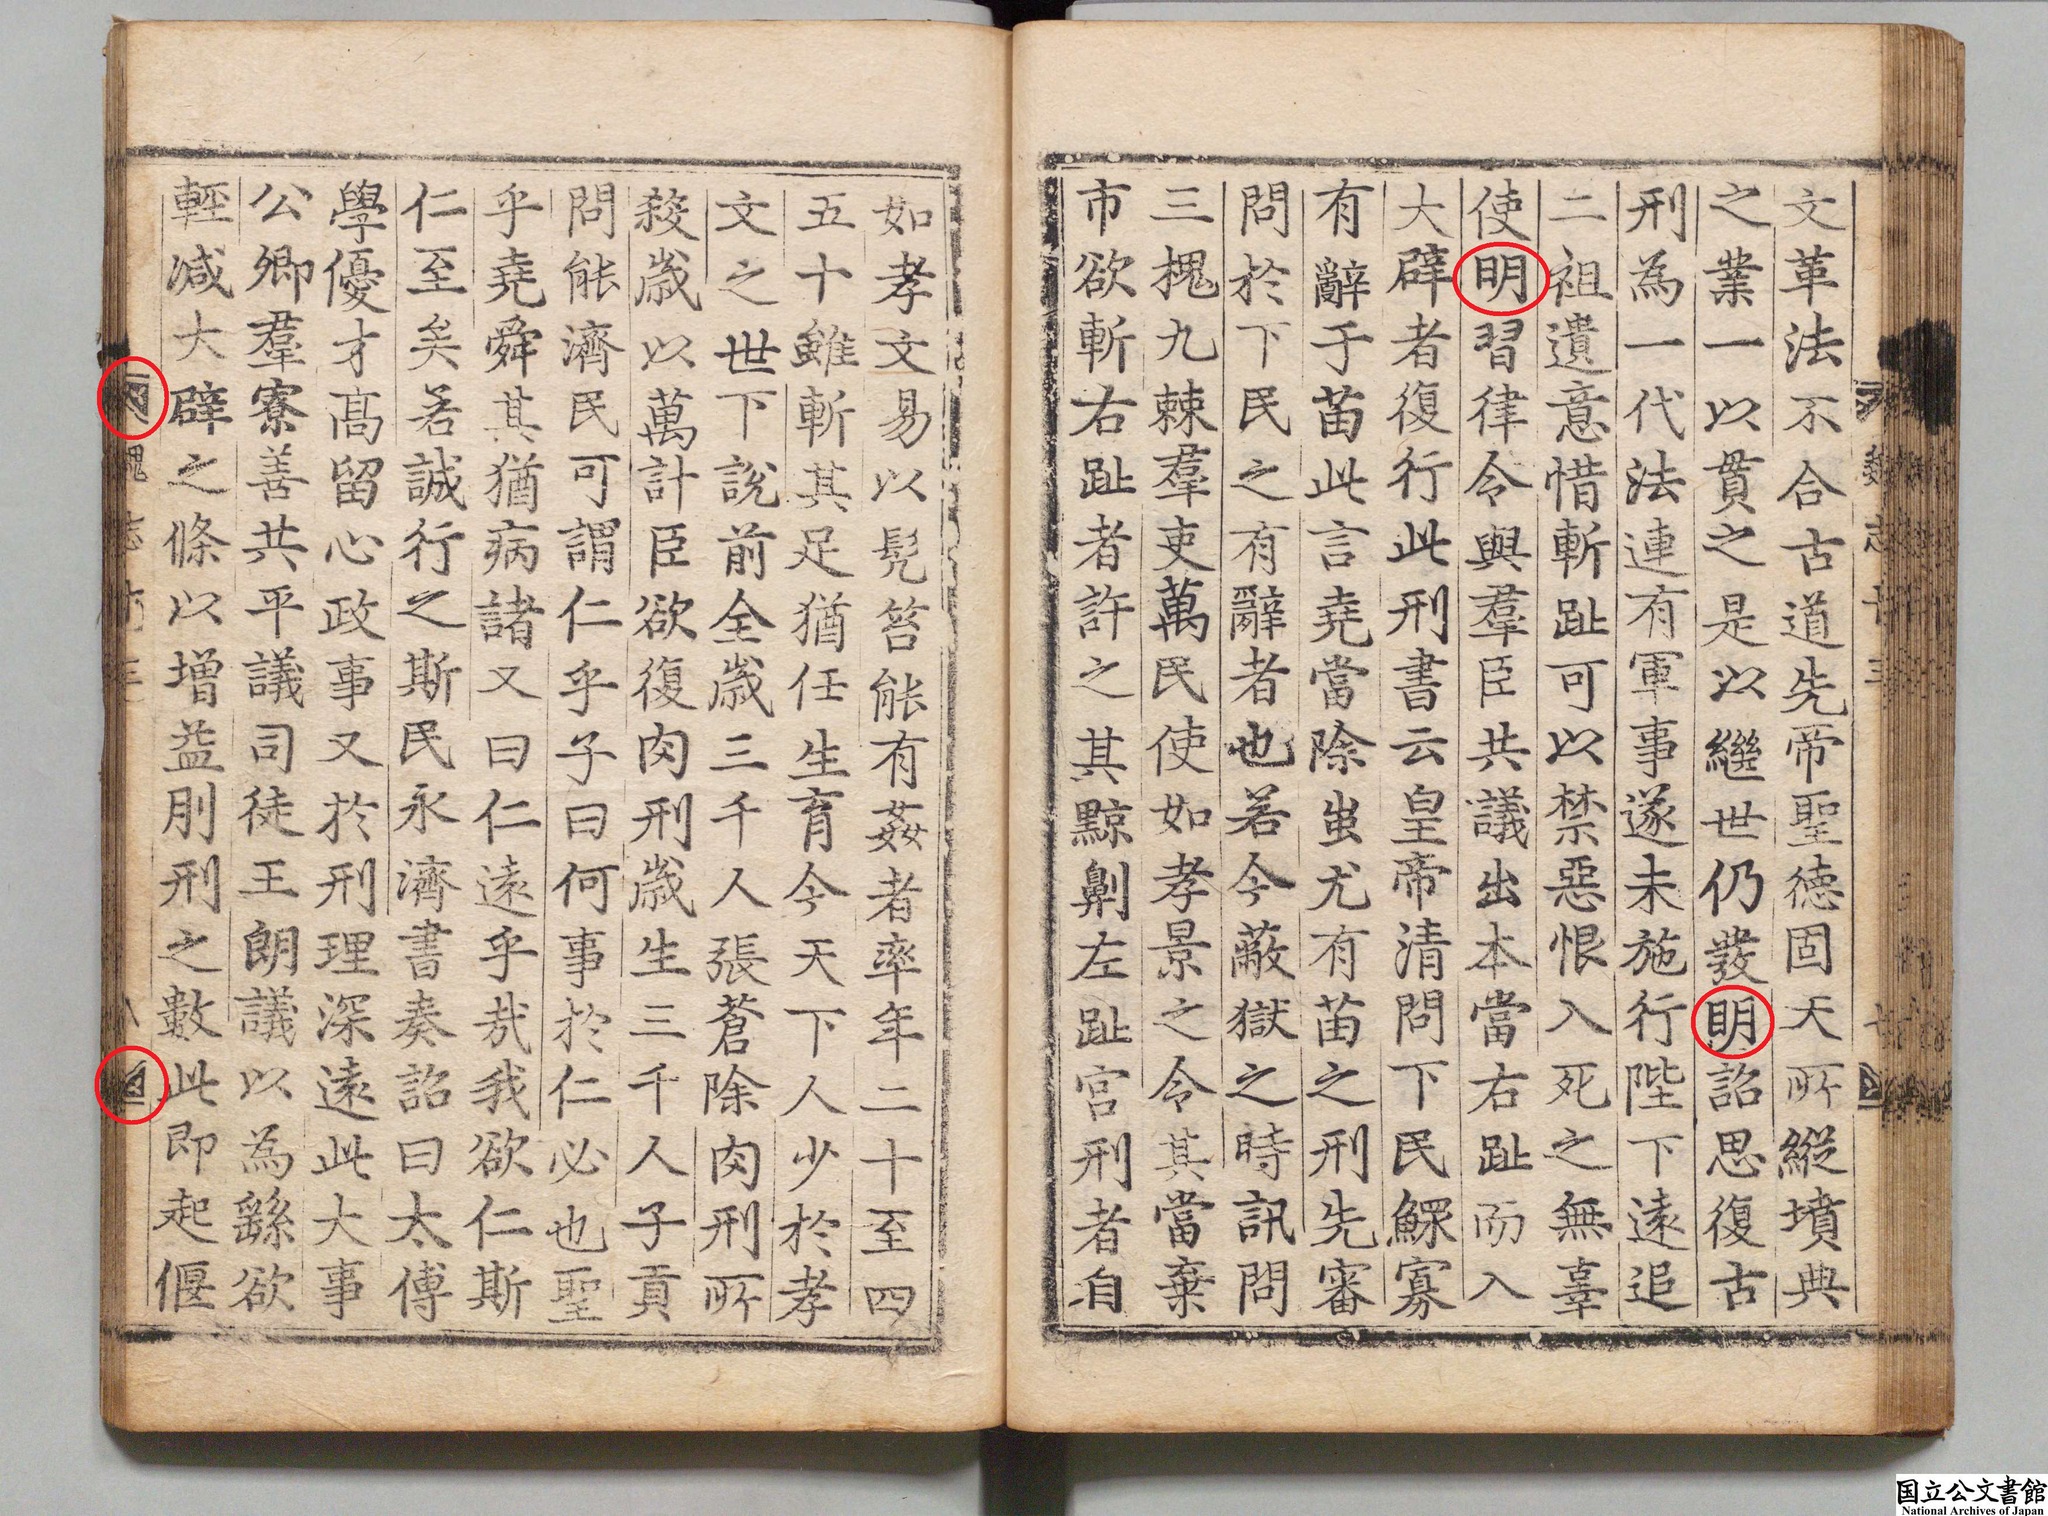 文革法不合古道先帝聖德固天所縱墳典
之業一以貫之是以繼世仍發明詔思復古
刑為一代法連有軍事遂未施行陛下遠追
二祖遺意惜斬趾可以禁惡恨入死之無辜
使明習律令與羣臣共議出本當右趾而入
大辟者復行此刑書云皇帝清問下民鰥寡
有辭于苗此言堯當除蚩尤有苗之刑先審
問於下民之有辭者也若今蔽獄之時訊問
三槐九棘羣吏萬民使如孝景之令其當棄
市欲斬右趾者許之其黥劓左趾宮刑者自
如孝文易以髠笞能有姦者率年二十至四
五十雖斬其足猶任生育今天下人少於孝
文之世下說前全歲三千人張蒼除肉刑所
殺歲以萬計臣欲復肉刑歲生三千人子貢
問能濟民可謂仁乎子曰何事於仁必也聖
乎堯舜其猶病諸又曰仁遠乎哉我欲仁斯
仁至矣若誠行之斯民永濟書奏詔曰太傅
學優才高留心政事又於刑理深遠此大事
公卿羣寮善共平議司徒王朗議以為繇欲
輕減大辟之條以增益刖刑之數此即起偃
魏志十三
国立公文書館
National Archives of Japan